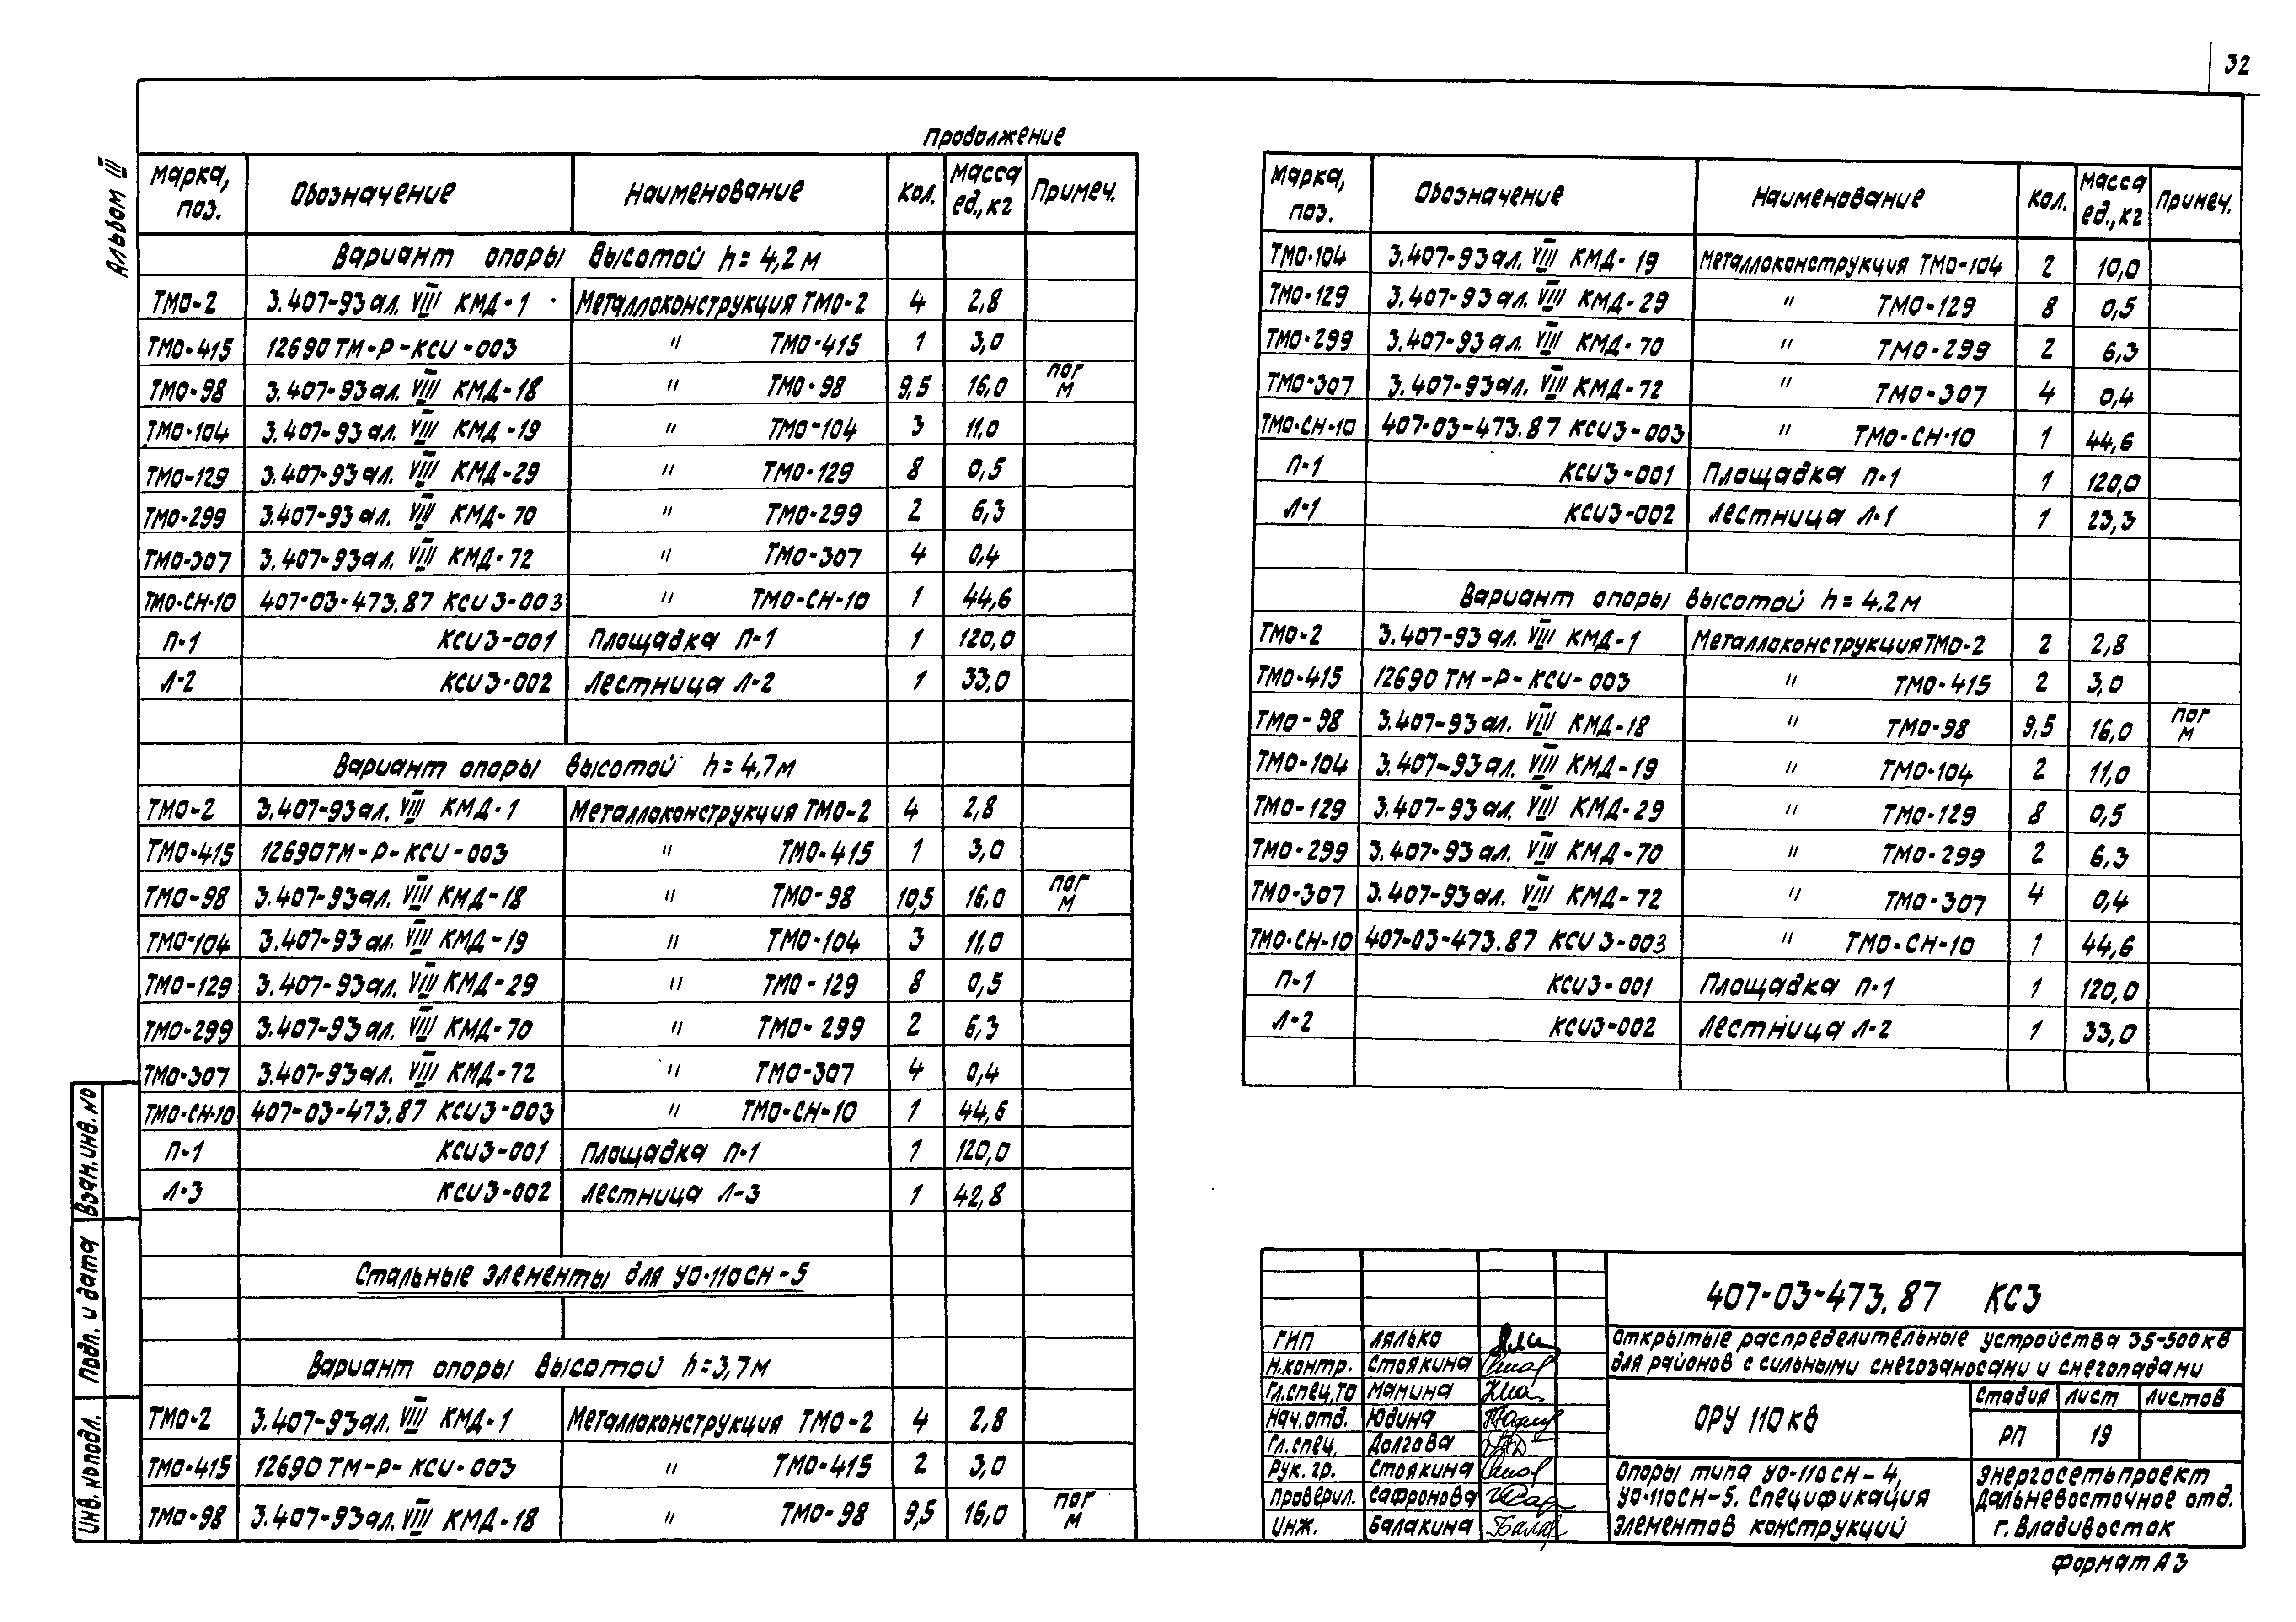 32
Альбом III
Продолжение
Марка, поз. Обозначение Наименование Кол. Масса ед., кг Примеч.
Вариант опоры высотой h=4,2м
ТМО-2 3.407-93 ал. VIII КМД-1 Металлоконструкция ТМО-2 4 2,8
ТМО-415 12690ТМ-Р-КСИ-003 " ТМО-415 1 3,0
ТМО-98 3.407-93 ал. VIII КМД-18 " ТМО-98 9,5 16,0 пог м
ТМО-104 3.407-93 ал. VIII КМД-19 " ТМО-104 3 11,0
ТМО-129 3.407-93 ал. VIII КМД-29 " ТМО-129 8 0,5
ТМО-299 3.407-93 ал. VIII КМД-70 " ТМО-299 2 6,3
ТМО-307 3.407-93 ал. VIII КМД-72 " ТМО-307 4 0,4
ТМО-СН-10 407-03-473.87 КСИ3-003 " ТМО-СН-10 1 44,6
П-1 КСИ3-001 Площадка П-1 1 120,0
Л-2 КСИ3-002 Лестница Л-2 1 33,0
Вариант опоры высотой h=4,7м
ТМО-2 3.407-93 ал. VIII КМД-1 Металлоконструкция ТМО-2 4 2,8
ТМО-415 12690ТМ-Р-КСИ-003 " ТМО-415 1 3,0
ТМО-98 3.407-93 ал. VIII КМД-18 " ТМО-98 10,5 16,0 пог м
ТМО-104 3.407-93 ал. VIII КМД-19 " ТМО-104 3 11,0
ТМО-129 3.407-93 ал. VIII КМД-29 " ТМО-129 8 0,5
ТМО-299 3.407-93 ал. VIII КМД-70 " ТМО-299 2 6,3
ТМО-307 3.407-93 ал. VIII КМД-72 " ТМО-307 4 0,4
ТМО-СН-10 407-03-473.87 КСИ3-003 " ТМО-СН-10 1 44,6
П-1 КСИ3-001 Площадка П-1 1 120,0
Л-3 КСИ3-002 Лестница Л-3 1 42,8
Стальные элементы для УО-110СН-5
Вариант опоры высотой h=3,7м
ТМО-2 3.407-93 ал. VIII КМД-1 Металлоконструкция ТМО-2 4 2,8
ТМО-415 12690ТМ-Р-КСИ-003 " ТМО-415 2 3,0
ТМО-98 3.407-93 ал. VIII КМД-18 " ТМО-98 9,5 16,0 пог м
Марка, поз. Обозначение Наименование Кол. Масса ед., кг Примеч.
ТМО-104 3.407-93 ал. VIII КМД-19 Металлоконструкция ТМО-104 2 10,0
ТМО-129 3.407-93 ал. VIII КМД-29 " ТМО-129 8 0,5
ТМО-299 3.407-93 ал. VIII КМД-70 " ТМО-299 2 6,3
ТМО-307 3.407-93 ал. VIII КМД-72 " ТМО-307 4 0,4
ТМО-СН-10 407-03-473.87 КСИ3-003 " ТМО-СН-10 1 44,6
П-1 КСИ3-001 Площадка П-1 1 120,0
Л-1 КСИ3-002 Лестница Л-1 1 23,3
Вариант опоры высотой h=4,2м
ТМО-2 3.407-93 ал. VIII КМД-1 Металлоконструкция ТМО-2 2 2,8
ТМО-415 12690ТМ-Р-КСИ-003 " ТМО-415 2 3,0
ТМО-98 3.407-93 ал. VIII КМД-18 " ТМО-98 9,5 16,0 пог м
ТМО-104 3.407-93 ал. VIII КМД-19 " ТМО-104 2 11,0
ТМО-129 3.407-93 ал. VIII КМД-29 " ТМО-129 8 0,5
ТМО-299 3.407-93 ал. VIII КМД-70 " ТМО-299 2 6,3
ТМО-307 3.407-93 ал. VIII КМД-72 " ТМО-307 4 0,4
ТМО-СН-10 407-03-473.87 КСИ3-003 " ТМО-СН-10 1 44,6
П-1 КСИ3-001 Площадка П-1 1 120,0
Л-2 КСИ3-002 Лестница Л-2 1 33,0
Взам. инв. №
Подп. и дата
Инв. № подл.
ГИП Лялько
Н.контр. Стоякина
Гл.спец.ТО Мамина
Нач.отд. Юдина
Гл.спец. Долгова
Рук. гр. Стоякина
Проверил. Сафронова
Инж. Балакина
407-03-473.87 КС3
Открытые распределительные устройства 35-500кв
для районов с сильными снегозаносами и снегопадами
ОРУ 110кв
Стадия Лист Листов
РП 19
Опоры типа УО-110СН-4,
УО-110СН-5. Спецификация
элементов конструкций
Энергосетьпроект
Дальневосточное отд.
г. Владивосток
Формат А3